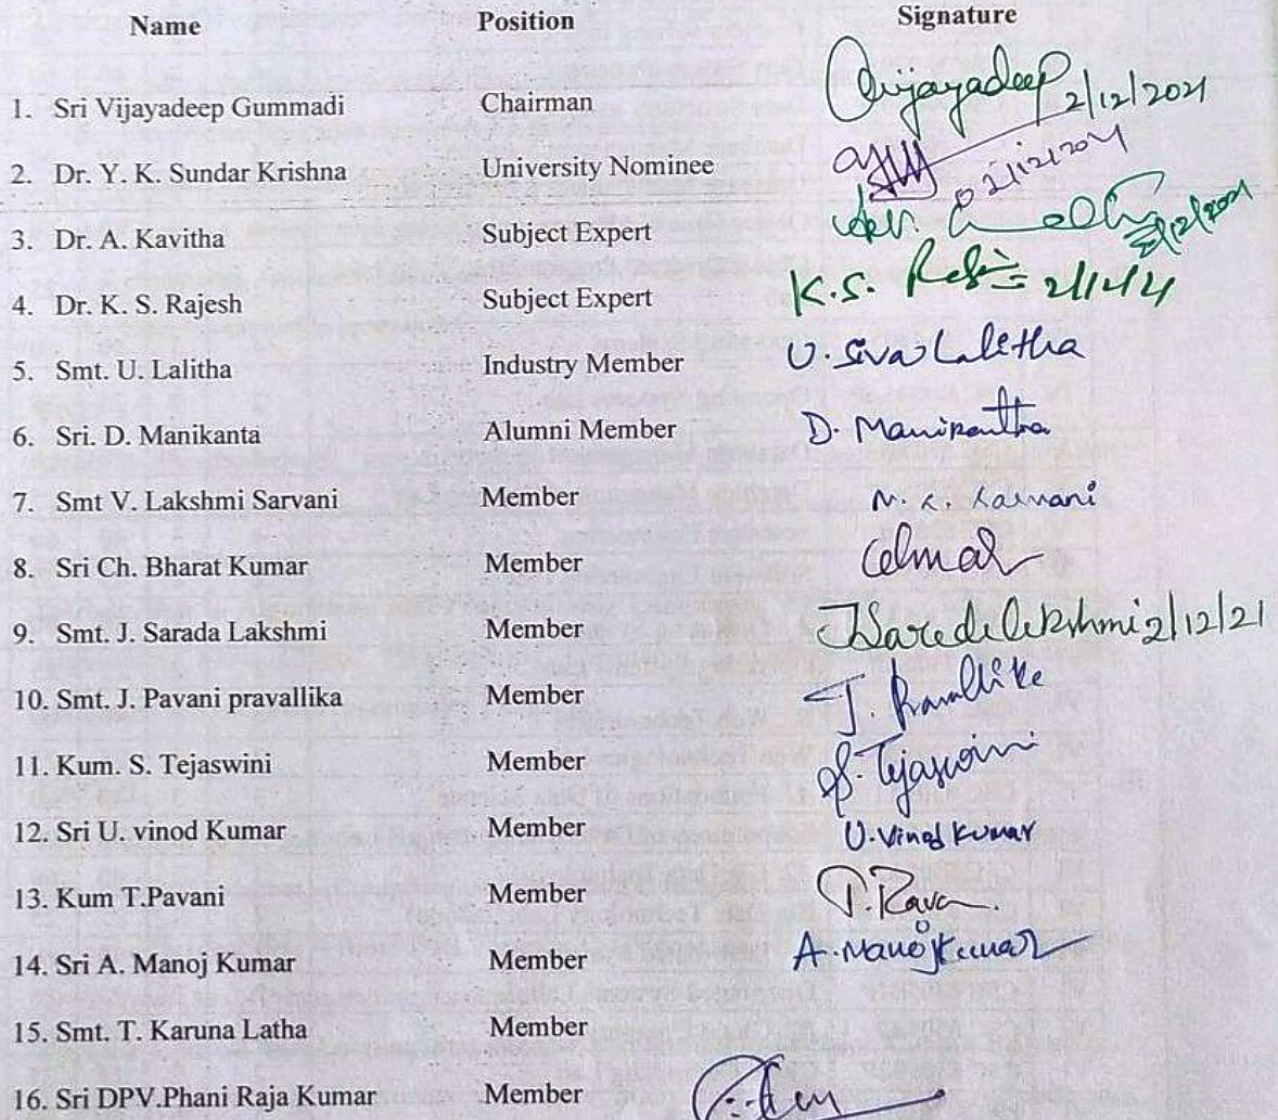 Name Position Signature
1. Sri Vijayadeep Gummadi Chairman Vijayadeep 2/12/2021
2. Dr. Y. K. Sundar Krishna University Nominee 02/12/2021
3. Dr. A. Kavitha Subject Expert 2/12/2021
4. Dr. K. S. Rajesh Subject Expert K.S.
5. Smt. U. Lalitha Industry Member U. Siva Lalitha
6. Sri. D. Manikanta Alumni Member D. Manikantha
7. Smt V. Lakshmi Sarvani Member
8. Sri Ch. Bharat Kumar Member
9. Smt. J. Sarada Lakshmi Member 2/12/21
10. Smt. J. Pavani pravallika Member J. Pravallike
11. Kum. S. Tejaswini Member S. Tejaswini
12. Sri U. vinod Kumar Member U. Vinod Kumar
13. Kum T.Pavani Member
14. Sri A. Manoj Kumar Member A. Manoj Kumar
15. Smt. T. Karuna Latha Member
16. Sri DPV.Phani Raja Kumar Member